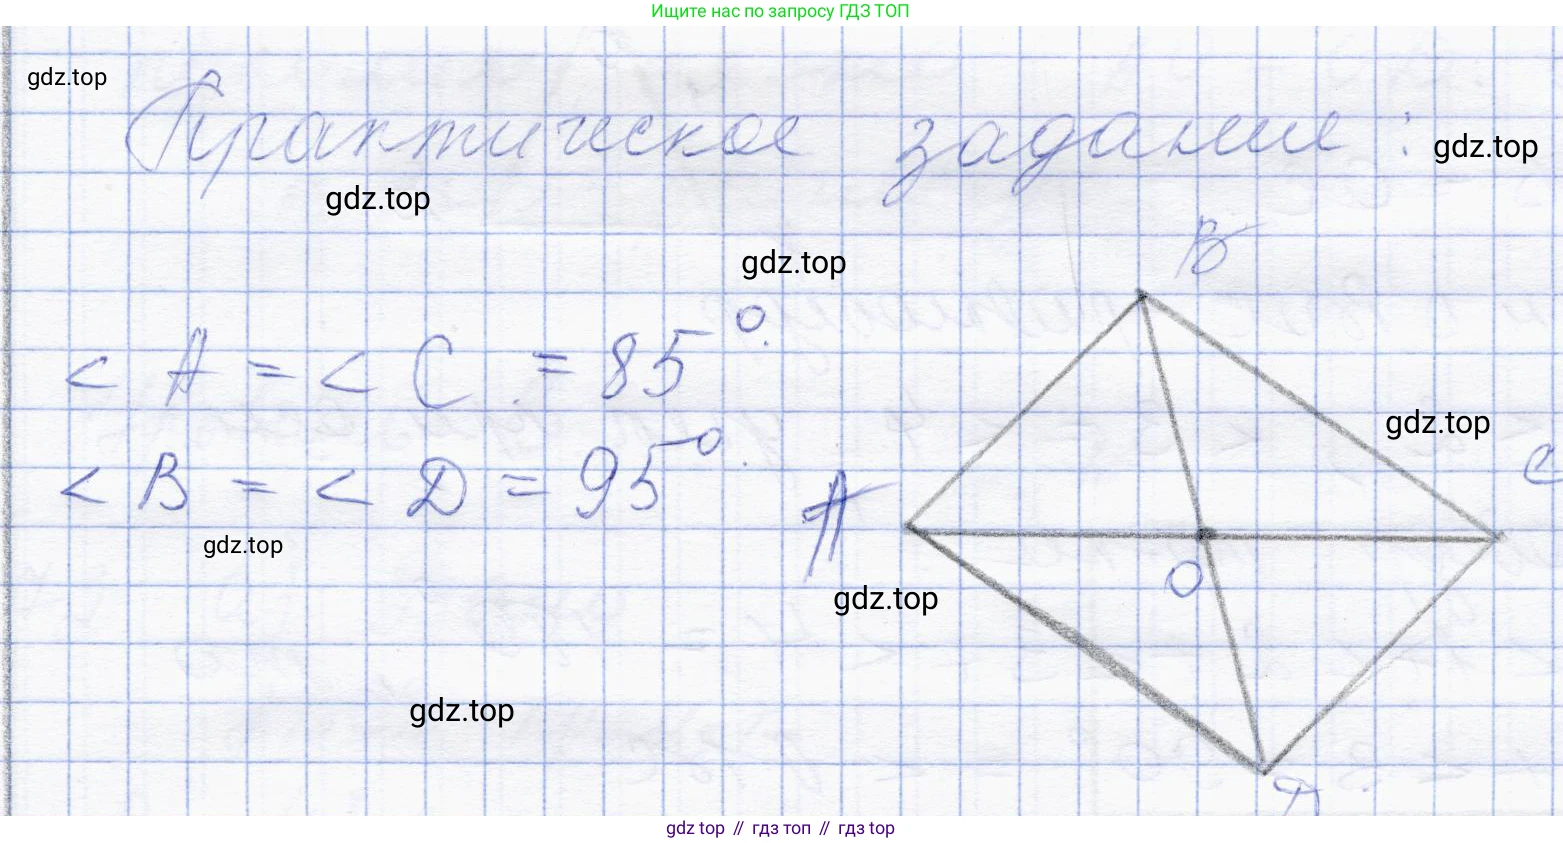 Ищите нас по запросу ГДЗ ТОП
gdz.top
Практическое задание:
gdz.top
gdz.top
B
gdz.top
< A = < C = 85°.
gdz.top
C
< B = < D = 95°.
A
gdz.top
O
gdz.top
gdz.top
D
gdz top // гдз топ // гдз top